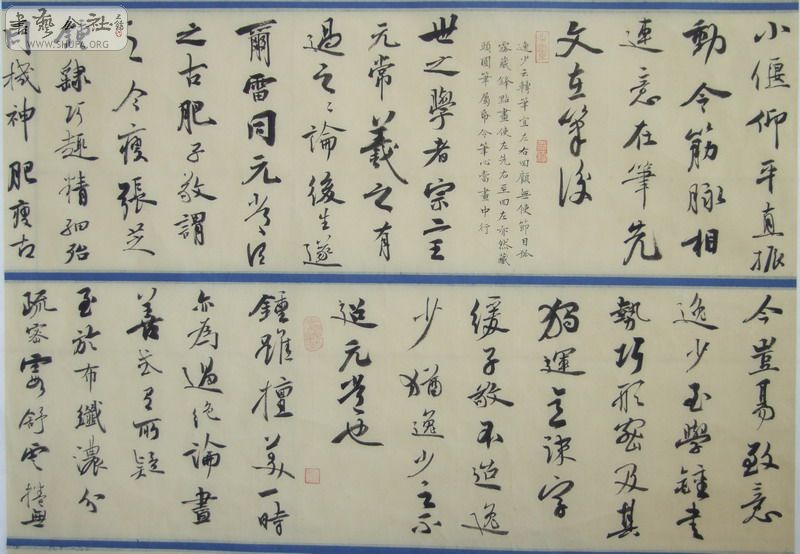 書藝公社
WWW.SHUFA.ORG
小偃仰平直振
動令筋脉相
連意在筆先
文在筆後
逸少云轉筆宜左右回顧無使節目孤
露藏鋒點畫使左先右至回左亦然藏
頭圓筆屬紙令筆心常畫中行
世之學者宗二王
元常羲之有
過之之論後生遂
爾雷同元常謂
之古肥子敬謂
之今瘦張芝
隸巧趣精細殆
同機神肥瘦古
今豈易致意
逸少至學鍾書
勢巧形密及其
獨運意疎字
緩子敬不迨逸
少猶逸少之不
迨元常也
鍾雖擅美一時
亦為過絕論畫
善或有所疑
至於布纖濃分
疏密霞舒雲捲無